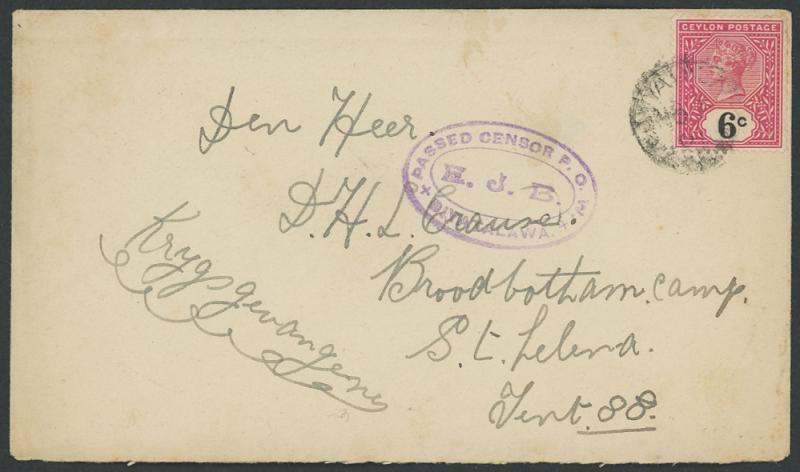 CEYLON POSTAGE
6c
Den Heer.
PASSED CENSOR P. O. W
H. J. B.
DIYATALAWA.
D.H.L. Crause.
Krygsgevangene
Broodbotham. camp.
St. Lelena.
Tent. 88.